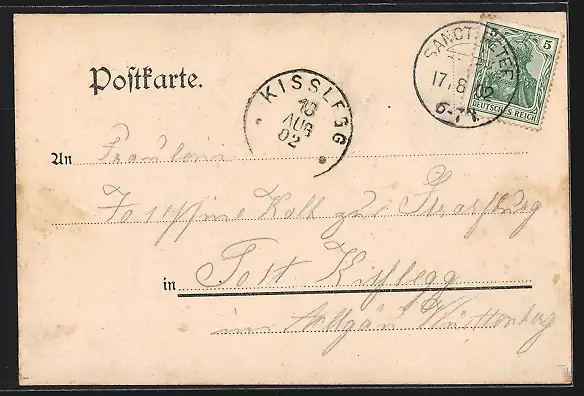 Postkarte.
SANCT PETER
17/8 02
6-7N.
5
DEUTSCHES REICH
KISSLEGG
18
AUG
02
An Fräulein
Josephine Kolb zur
in Post Kisslegg
im Allgäu Württenberg